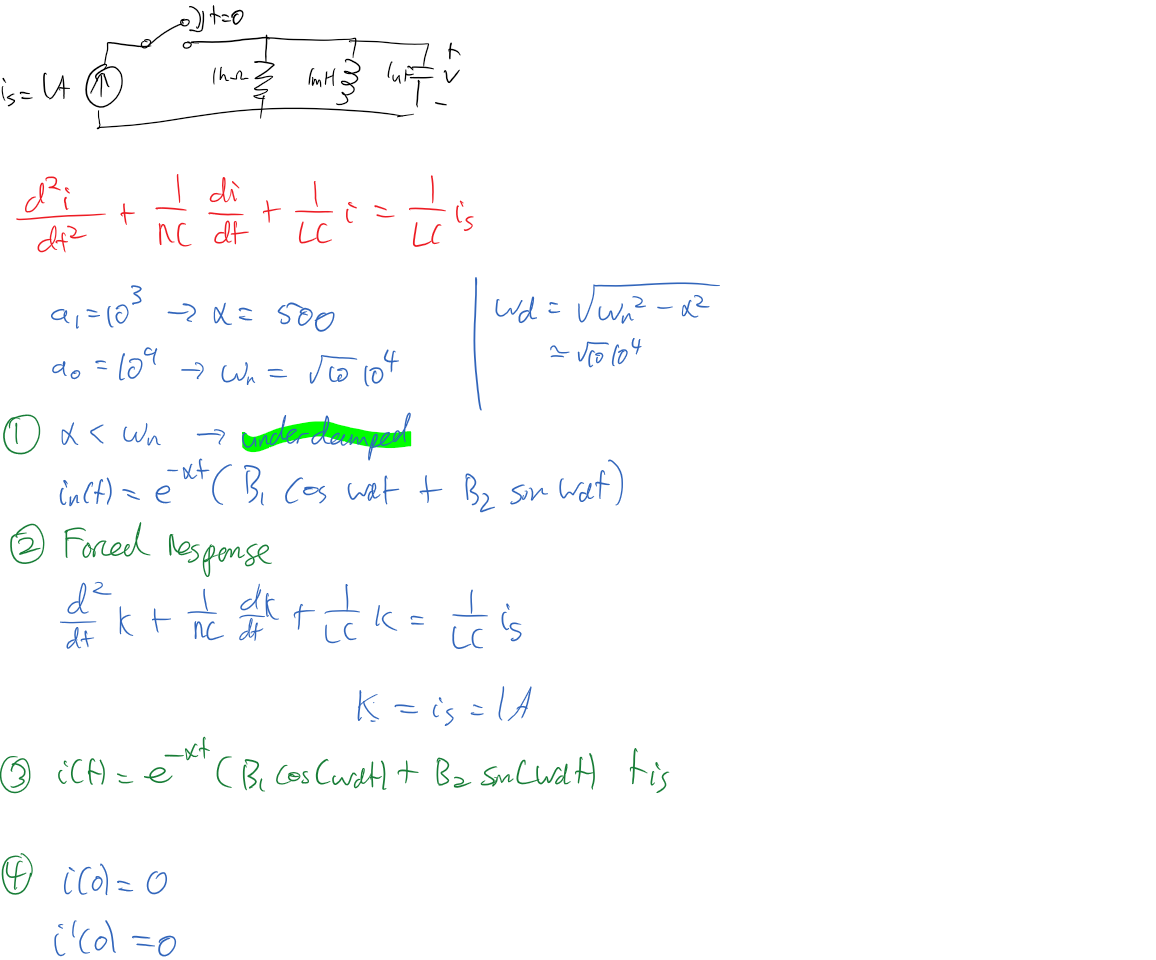 t=0
is = 1A
1kΩ 1mH 1uF + V -
d²i/dt² + 1/RC di/dt + 1/LC i = 1/LC is
a₁ = 10³ → α = 500
a₀ = 10⁹ → ωn = √10 10⁴
ωd = √(ωn² - α²)
≃ √10 10⁴
① α < ωn → underdamped
in(t) = e^-αt (B₁ cos ωdt + B₂ sin ωdt)
② Forced Response
d²/dt K + 1/RC dK/dt + 1/LC K = 1/LC is
K = is = 1A
③ i(t) = e^-αt (B₁ cos(ωdt) + B₂ sin(ωdt) + is
④ i(0) = 0
i'(0) = 0